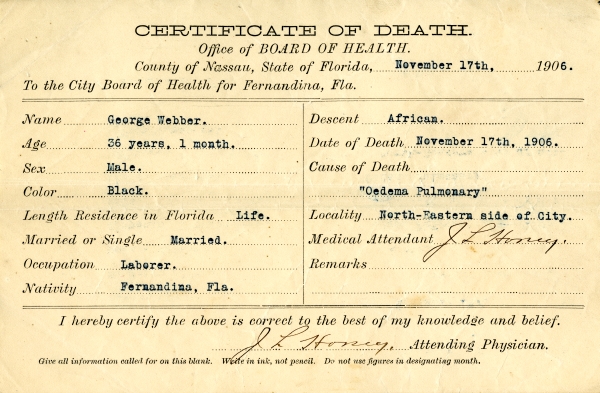 CERTIFICATE OF DEATH.
Office of BOARD OF HEALTH.
County of Nassau, State of Florida, November 17th, 1906.
To the City Board of Health for Fernandina, Fla.
Name George Webber.
Age 36 years, 1 month.
Sex Male.
Color Black.
Length Residence in Florida Life.
Married or Single Married.
Occupation Laborer.
Nativity Fernandina, Fla.
Descent African.
Date of Death November 17th, 1906.
Cause of Death
"Oedema Pulmonary"
Locality North-Eastern side of City.
Medical Attendant J L Horsey.
Remarks
I hereby certify the above is correct to the best of my knowledge and belief.
J L Horsey. Attending Physician.
Give all information called for on this blank. Write in ink, not pencil. Do not use figures in designating month.